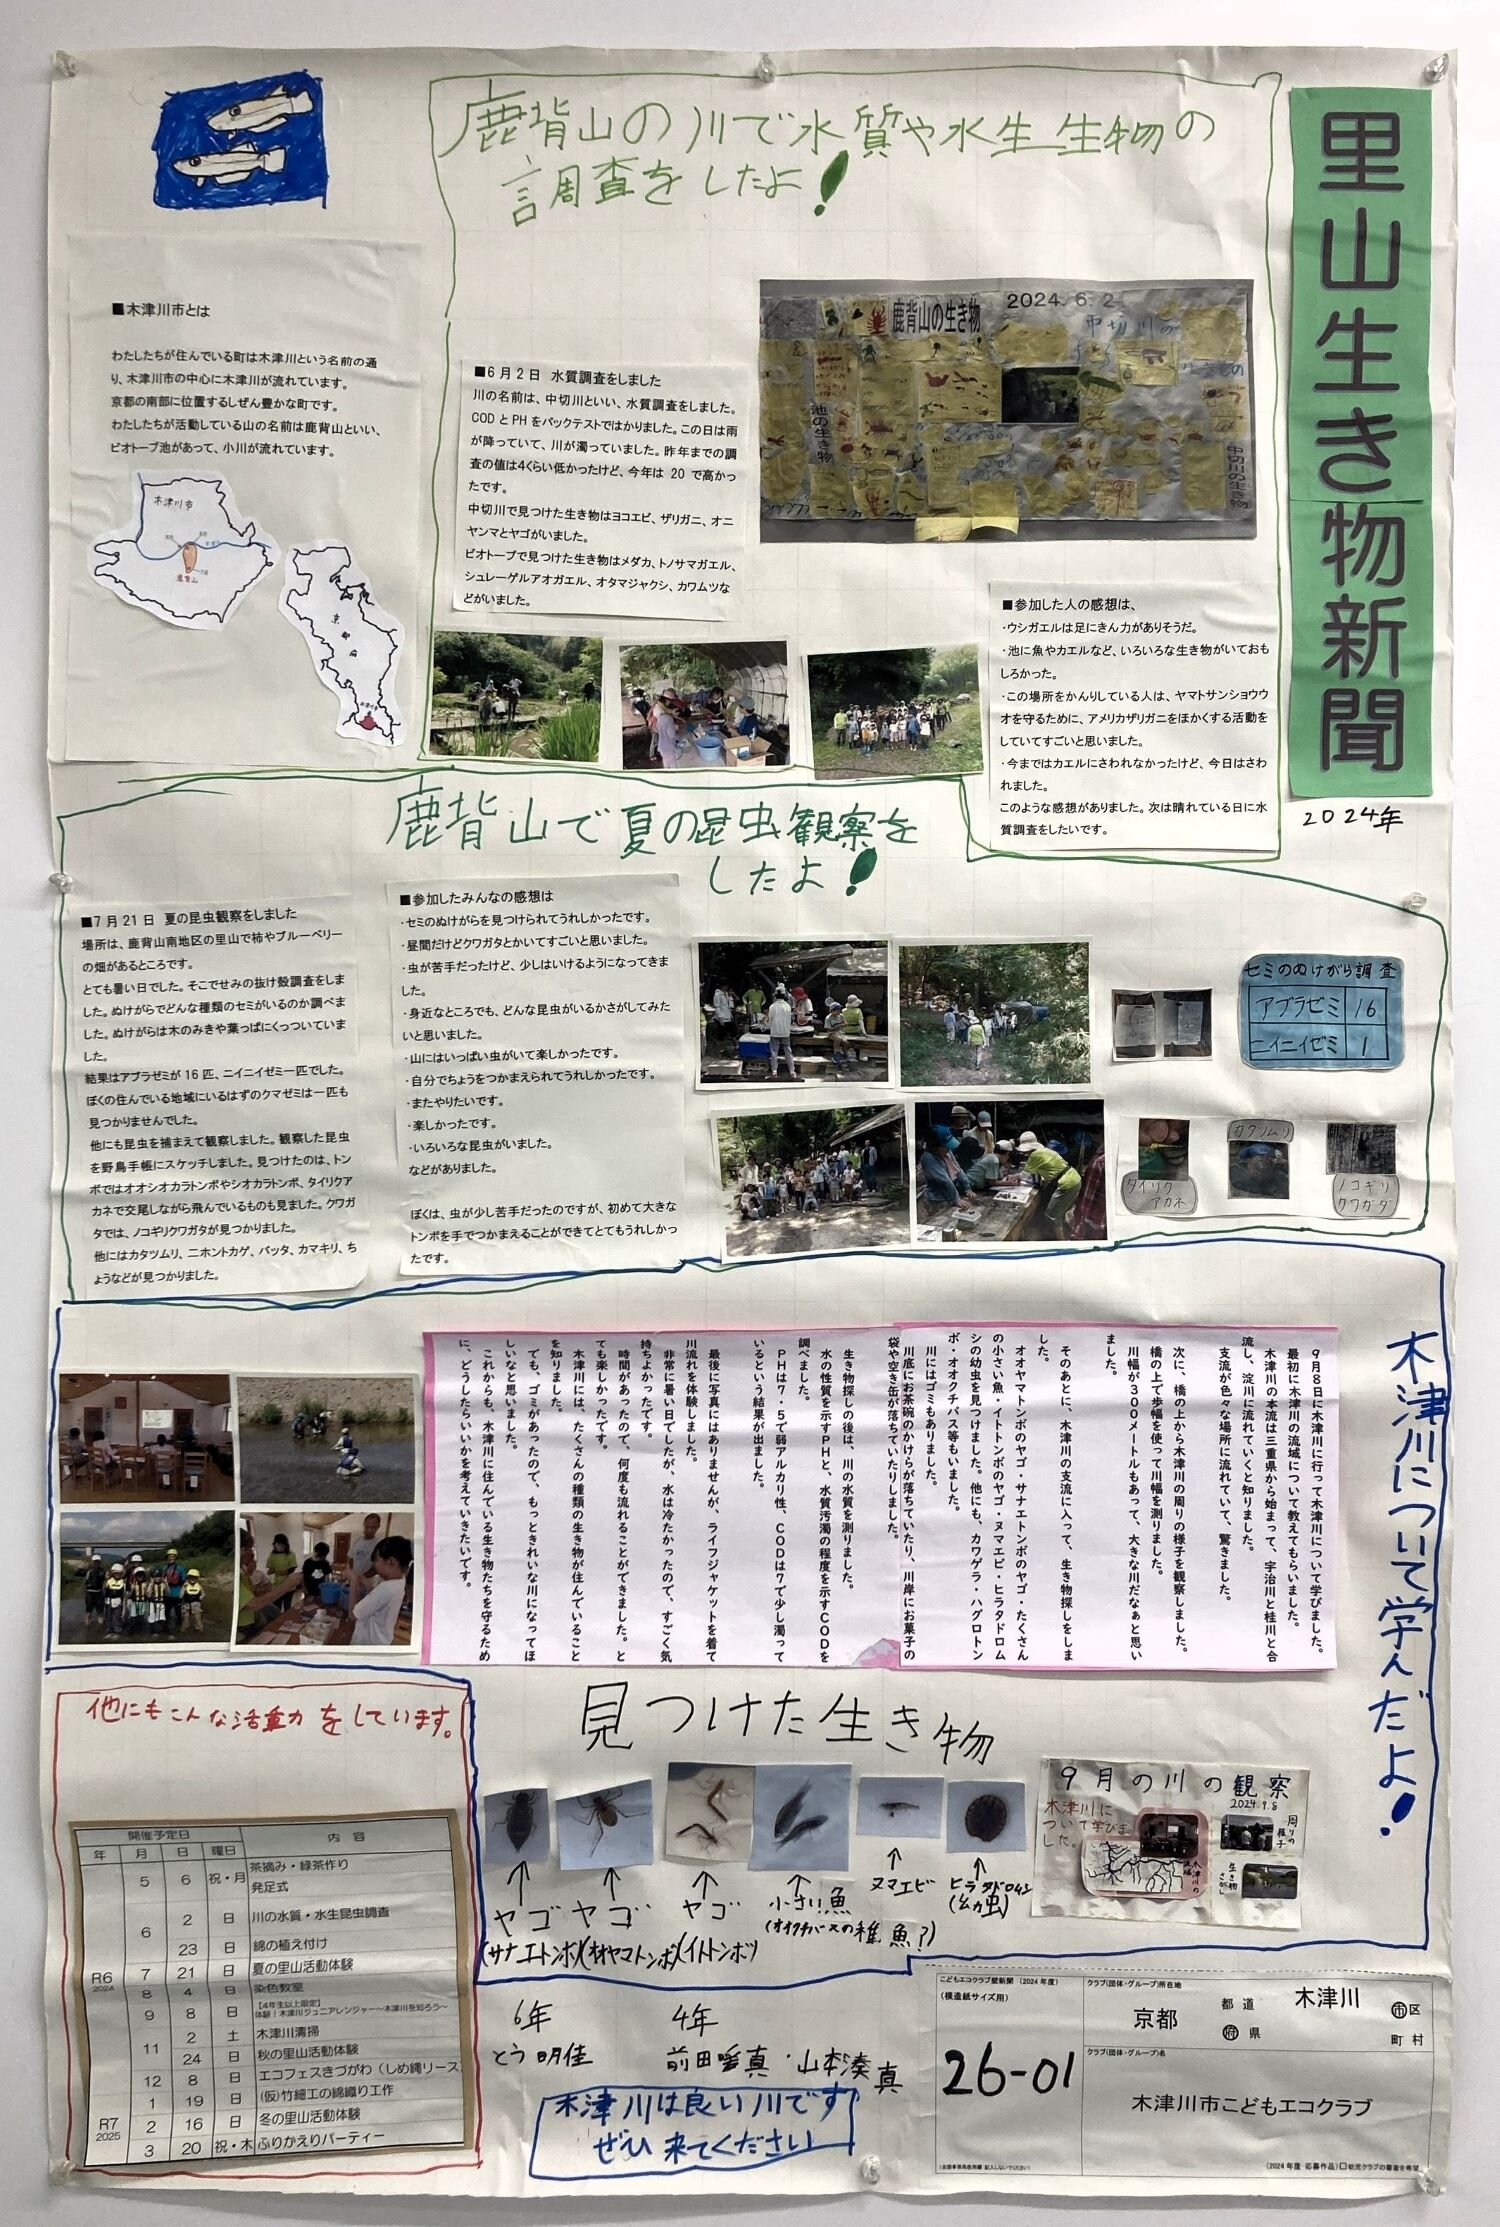 里山生き物新聞
2024年
鹿背山の川で水質や水生生物の
調査をしたよ!
■木津川市とは
わたしたちが住んでいる町は木津川という名前の通
り、木津川市の中心に木津川が流れています。
京都の南部に位置するしぜん豊かな町です。
わたしたちが活動している山の名前は鹿背山といい、
ビオトープ池があって、小川が流れています。
木津川市
鹿背山
京都府
■6月2日 水質調査をしました
川の名前は、中切川といい、水質調査をしました。
CODとPHをパックテストではかりました。この日は雨
が降っていて、川が濁っていました。昨年までの調
査の値は4くらい低かったけど、今年は 20 で高かっ
たです。
中切川で見つけた生き物はヨコエビ、ザリガニ、オニ
ヤンマとヤゴがいました。
ビオトープで見つけた生き物はメダカ、トノサマガエル、
シュレーゲルアオガエル、オタマジャクシ、カワムツな
どがいました。
鹿背山の生き物
2024.6.2
池の生き物
中切川の生き物
■参加した人の感想は、
・ウシガエルは足にきん力がありそうだ。
・池に魚やカエルなど、いろいろな生き物がいておも
しろかった。
・この場所をかんりしている人は、ヤマトサンショウウ
オを守るために、アメリカザリガニをほかくする活動を
していてすごいと思いました。
・今まではカエルにさわれなかったけど、今日はさわ
れました。
このような感想がありました。次は晴れている日に水
質調査をしたいです。
鹿背山で夏の昆虫観察を
したよ!
■7月21日 夏の昆虫観察をしました
場所は、鹿背山南地区の里山で柿やブルーベリー
の畑があるところです。
とても暑い日でした。そこでせみの抜け殻調査をしま
した。ぬけがらでどんな種類のセミがいるのか調べま
した。ぬけがらは木のみきや葉っぱにくっついていま
した。
結果はアブラゼミが 16 匹、ニイニイゼミ一匹でした。
ぼくの住んでいる地域にいるはずのクマゼミは一匹も
見つかりませんでした。
他にも昆虫を捕まえて観察しました。観察した昆虫
を野鳥手帳にスケッチしました。見つけたのは、トン
ボではオオシオカラトンボやシオカラトンボ、タイリクア
カネで交尾しながら飛んでいるものも見ました。クワガ
タでは、ノコギリクワガタが見つかりました。
他にはカタツムリ、ニホントカゲ、バッタ、カマキリ、ち
ょうなどが見つかりました。
■参加したみんなの感想は
・セミのぬけがらを見つけられてうれしかったです。
・昼間だけどクワガタとかいてすごいと思いました。
・虫が苦手だったけど、少しはいけるようになってきま
した。
・身近なところでも、どんな昆虫がいるかさがしてみた
いと思いました。
・山にはいっぱい虫がいて楽しかったです。
・自分でちょうをつかまえられてうれしかったです。
・またやりたいです。
・楽しかったです。
・いろいろな昆虫がいました。
などがありました。
ぼくは、虫が少し苦手だったのですが、初めて大きな
トンボを手でつかまえることができてとてもうれしかっ
たです。
セミのぬけがら調査
アブラゼミ 16
ニイニイゼミ 1
タイリク
アカネ
カタツムリ
ノコギリ
クワガタ
木津川について学んだよ!
9月8日に木津川に行って木津川について学びました。
最初に木津川の流域について教えてもらいました。
木津川の本流は三重県から始まって、宇治川と桂川と合
流し、淀川に流れていくと知りました。
支流が色々な場所に流れていて、驚きました。
次に、橋の上から木津川の周りの様子を観察しました。
橋の上で歩幅を使って川幅を測りました。
川幅が300メートルもあって、大きな川だなぁと思い
ました。
そのあとに、木津川の支流に入って、生き物探しをしま
した。
オオヤマトンボのヤゴ・サナエトンボのヤゴ・たくさん
の小さい魚・イトトンボのヤゴ・ヌマエビ・ヒラタドロム
シの幼虫を見つけました。他にも、カワゲラ・ハグロトン
ボ・オオクチバス等もいました。
川にはゴミもありました。
川底にお茶碗のかけらが落ちていたり、川岸にお菓子の
袋や空き缶が落ちていたりしました。
生き物探しの後は、川の水質を測りました。
水の性質を示すPHと、水質汚濁の程度を示すCODを
調べました。
PHは7・5で弱アルカリ性、CODは7で少し濁って
いるという結果が出ました。
最後に写真にはありませんが、ライフジャケットを着て
川流れを体験しました。
非常に暑い日でしたが、水は冷たかったので、すごく気
持ちよかったです。
時間があったので、何度も流れることができました。と
ても楽しかったです。
木津川には、たくさんの種類の生き物が住んでいること
を知りました。
でも、ゴミがあったので、もっときれいな川になってほ
しいなと思いました。
これからも、木津川に住んでいる生き物たちを守るため
に、どうしたらいいかを考えていきたいです。
見つけた生き物
ヤゴ
(サナエトンボ)
ヤゴ
(オオヤマトンボ)
ヤゴ
(イトトンボ)
小さい魚
(オオクチバスの稚魚?)
ヌマエビ
ヒラタドロムシ
(幼虫)
9月の川の観察
2024.9.8
木津川に
ついて学びま
した。
木津川の
周りの
様子
生き物
さがし
他にもこんな活動をしています。
開催予定日 内容
年 月 日 曜日
R6 2024
5 6 祝・月 茶摘み・緑茶作り
発足式
6 2 日 川の水質・水生昆虫調査
23 日 綿の植え付け
7 21 日 夏の里山活動体験
8 4 日 染色教室
9 8 日 【4年生以上限定】
体験!木津川ジュニアレンジャー〜木津川を知ろう〜
11 2 土 木津川清掃
24 日 秋の里山活動体験
12 8 日 エコフェスきづがわ(しめ縄リース)
R7 2025
1 19 日 (仮)竹細工の綿織り工作
2 16 日 冬の里山活動体験
3 20 祝・木 ふりかえりパーティー
6年
とう 明佳
4年
前田 真・山本湊真
木津川は良い川です
ぜひ来てください
こどもエコクラブ壁新聞 (2024年度)
(模造紙サイズ用)
26-01
クラブ(団体・グループ)所在地
京都 都道府県 木津川 市区町村
クラブ(団体・グループ)名
木津川市こどもエコクラブ
(全国事務局使用欄 記入しないでください)
(2024年度 応募作品)□幼児クラブの審査を希望